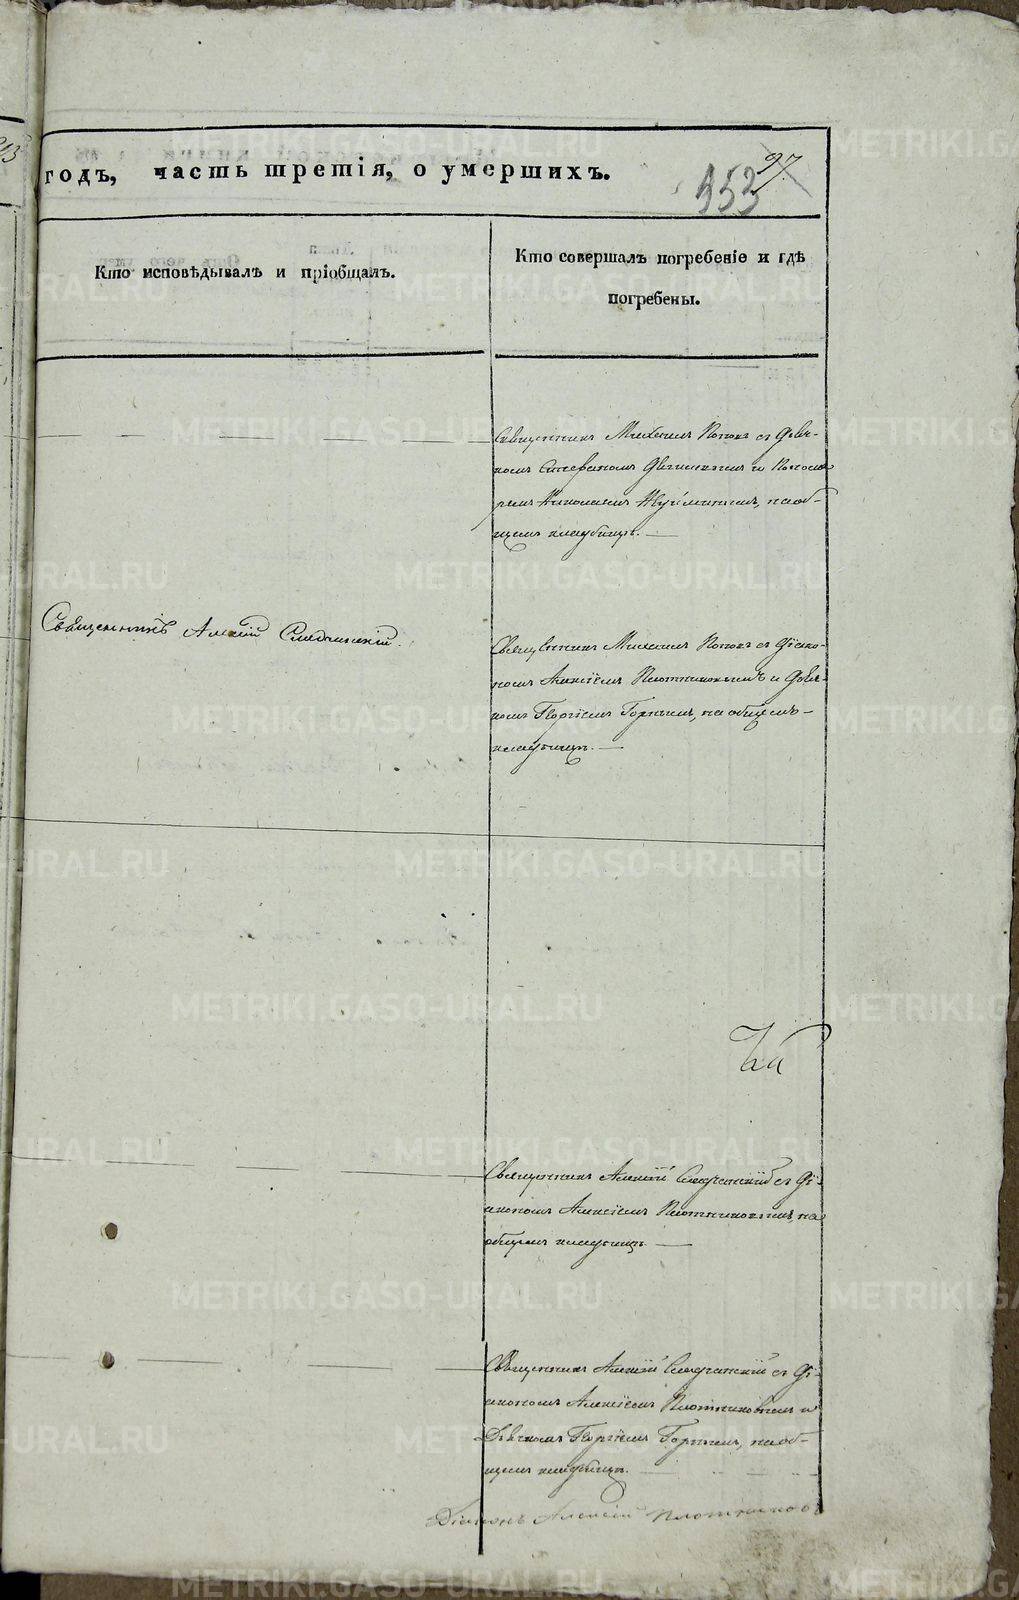 годъ, часть третія, о умершихъ.
97
453
Кто исповѣдывалъ и пріобщалъ.
Кто совершалъ погребеніе и гдѣ
погребены.
Священникъ Михаилъ Поповъ съ Дьяч-
комъ Стефаномъ и Понома
ремъ Николаемъ на об-
щемъ кладбищѣ.
Священникъ Алексій
Священникъ Михаилъ Поповъ съ Діако-
номъ Алексіемъ Плотниковымъ и Дьяч-
комъ Георгіемъ Горнымъ, на общемъ
кладбищѣ.
Священникъ Алексій съ Ді-
акономъ Алексіемъ Плотниковымъ, на
общемъ кладбищѣ
Священникъ Алексій съ Ді-
акономъ Алексіемъ Плотниковымъ и
Дьячкомъ Георгіемъ Горнымъ, на об-
щемъ кладбищѣ.
Діаконъ Алексій Плотниковъ
METRIKI.GASO-URAL.RU